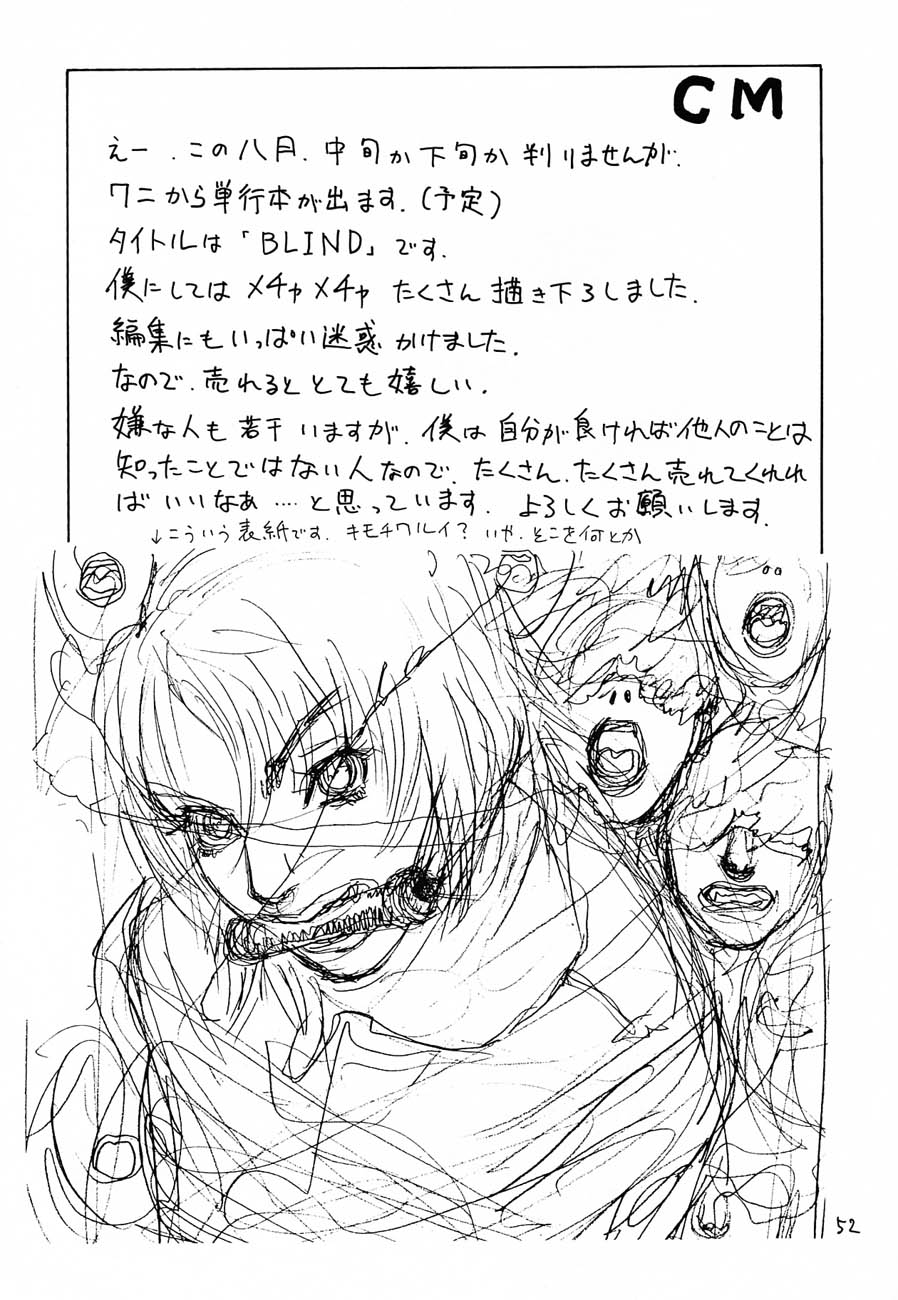 CM
えー、この八月、中旬か下旬か判りませんが、
ワニから単行本が出ます。(予定)
タイトルは「BLIND」です。
僕にしてはメチャメチャたくさん描き下ろしました。
編集にもいっぱい迷惑かけました。
なので、売れるととても嬉しい。
嫌な人も若干いますが、僕は自分が良ければ他人のことは
知ったことではない人なので、たくさん、たくさん売れてくれれ
ばいいなぁ…と思っています。よろしくお願いします。
↓こういう表紙です。キモチワルイ?いや、そこを何とか
52